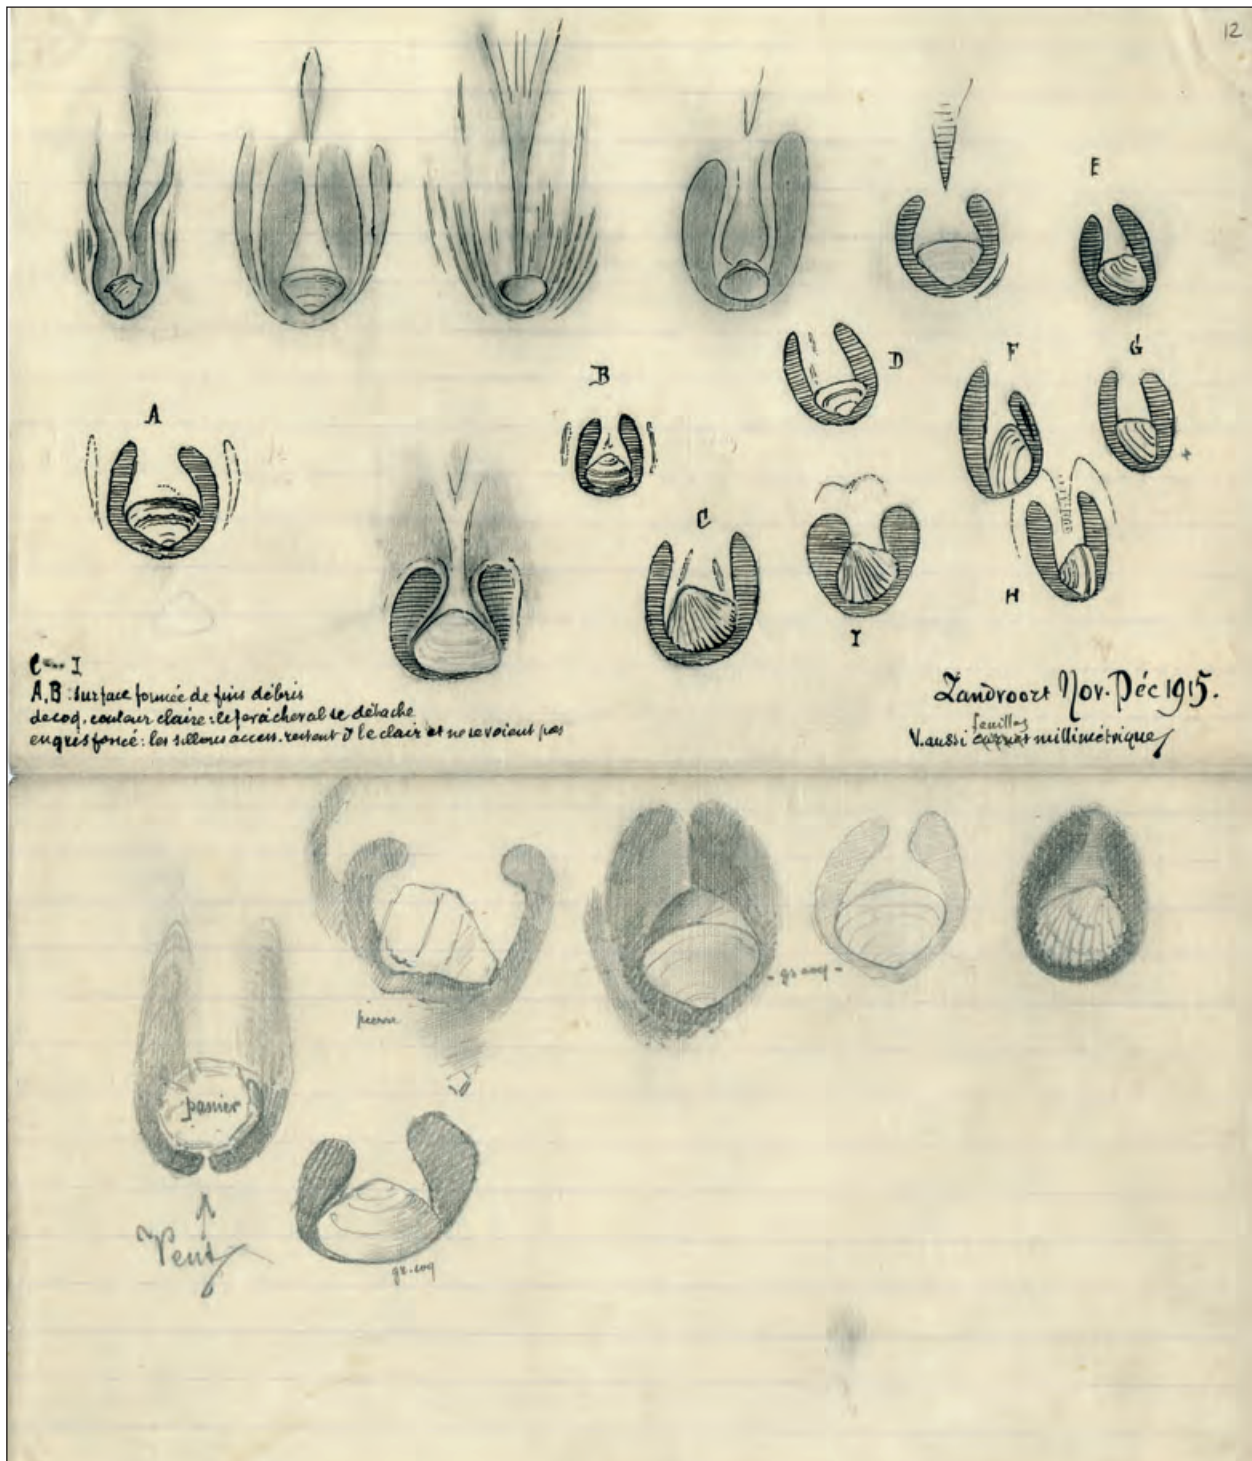 12
E
B
D
F
G
A
C
H
I
C--- I
A,B : surface formée de fins débris
de coq. couleur claire : le fer à cheval se détache
en gris foncé : les sillons access. restent d le clair et ne se voient pas
Zandvoort Nov.-Déc 1915.
feuilles
V. aussi carnet millimétrique
pierre
- gr coq -
panier
Vent
gr. coq